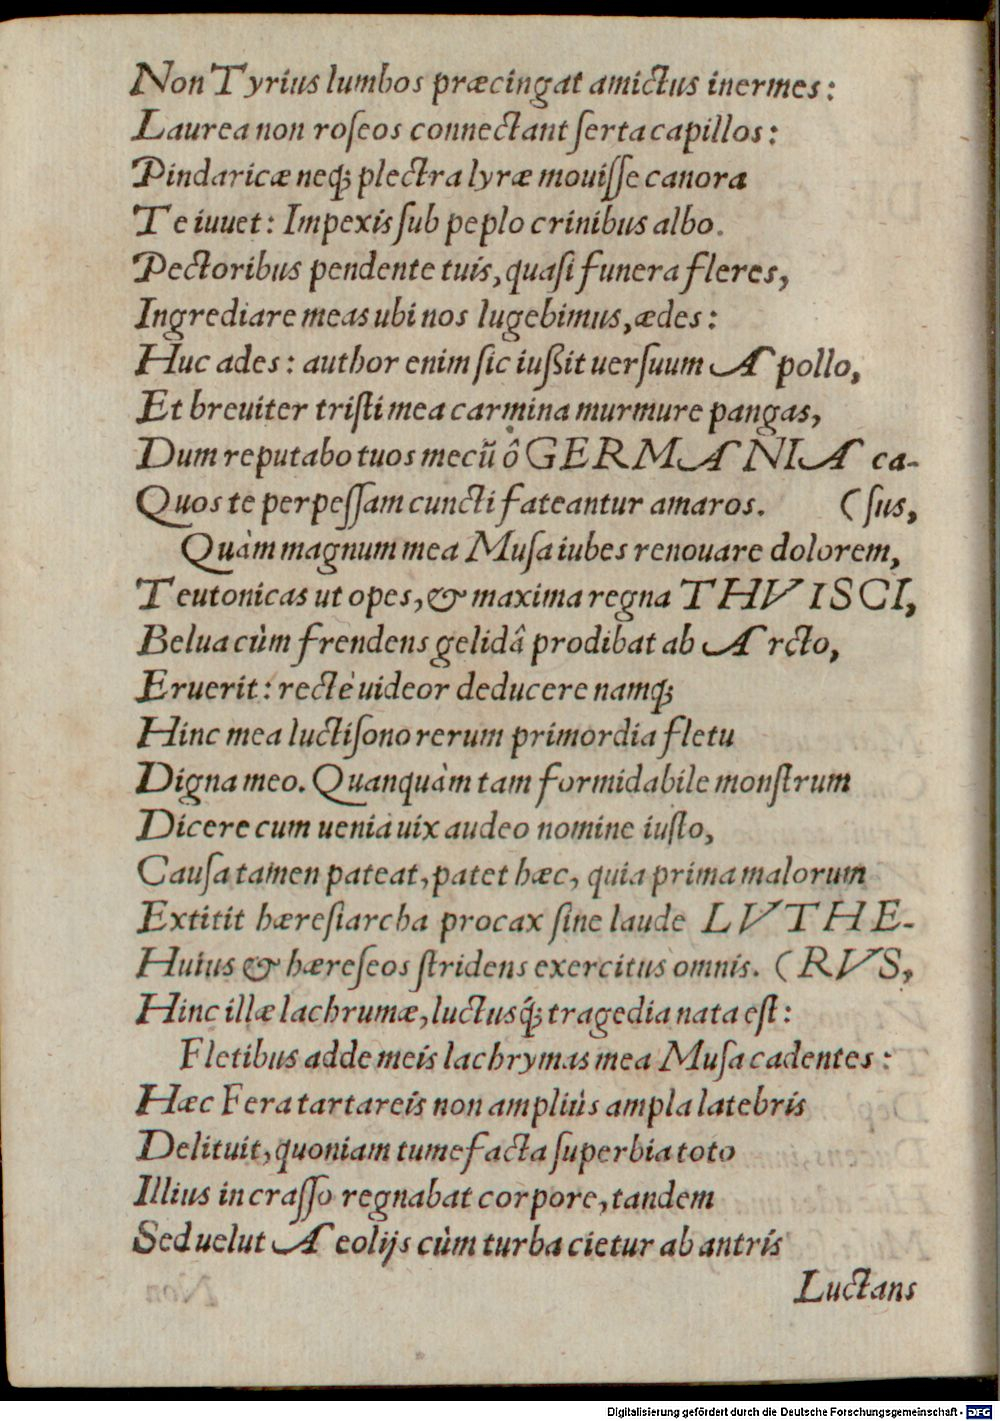 Non Tyrius lumbos præcingat amictus inermes:
Laurea non roſeos connectant ſerta capillos:
Pindaricæ neq; plectra lyræ mouiſſe canora
Te iuuet: Impexis ſub peplo crinibus albo.
Pectoribus pendente tuis, quaſi funera fleres,
Ingrediare meas ubi nos lugebimus, ædes:
Huc ades: author enim ſic iußit uerſuum Apollo,
Et breuiter triſti mea carmina murmure pangas,
Dum reputabo tuos mecũ ô GERMANIA ca-
Quos te perpeſſam cuncti fateantur amaros. (ſus,
Quàm magnum mea Muſa iubes renouare dolorem,
Teutonicas ut opes, & maxima regna THVISCI,
Belua cùm frendens gelidâ prodibat ab Arcto,
Eruerit: rectè uideor deducere namq;
Hinc mea luctiſono rerum primordia fletu
Digna meo. Quanquàm tam formidabile monſtrum
Dicere cum uenia uix audeo nomine iuſto,
Cauſa tamen pateat, patet hæc, quia prima malorum
Extitit hæreſiarcha procax ſine laude LVTHE-
Huius & hæreſeos ſtridens exercitus omnis. (RVS,
Hinc illæ lachrumæ, luctusq́; tragedia nata eſt:
Fletibus adde meis lachrymas mea Muſa cadentes:
Hæc Fera tartareis non ampliùs ampla latebris
Delituit, quoniam tumefacta ſuperbia toto
Illius in craſſo regnabat corpore, tandem
Sed uelut Aeolijs cùm turba cietur ab antris
Luctans
Digitalisierung gefördert durch die Deutsche Forschungsgemeinschaft - DFG